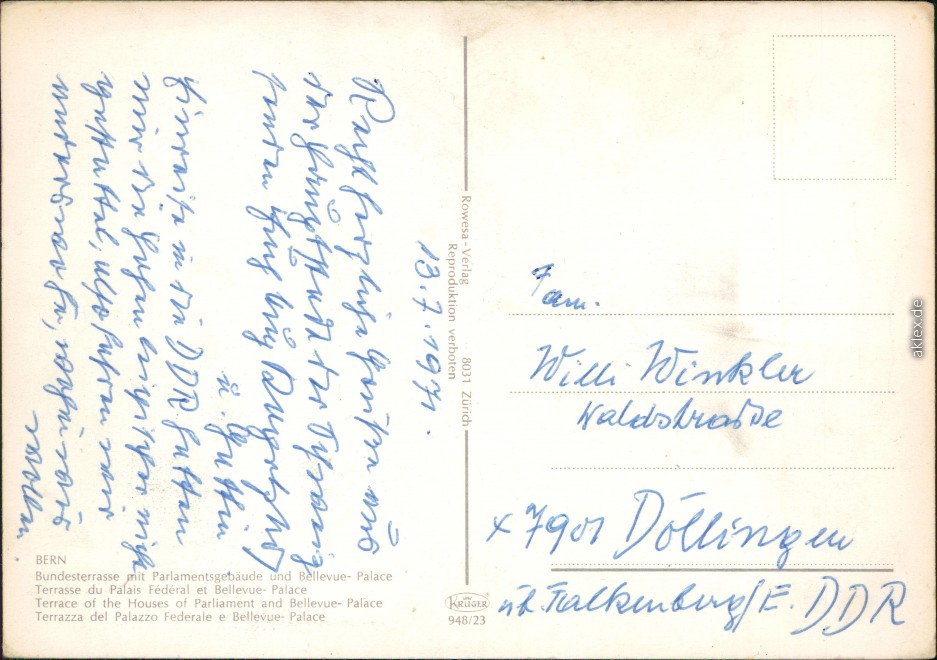 13.7.1971.
Recht herzliche Grüße aus
der Hauptstadt der Schweiz
senden Euch Willy
u. Gattin.
in die DDR hatten
wir die nicht
also fahren wir
wohin wir
wollen
BERN
Bundesterrasse mit Parlamentsgebäude und Bellevue- Palace
Terrasse du Palais Fédéral et Bellevue- Palace
Terrace of the Houses of Parliament and Bellevue- Palace
Terrazza del Palazzo Federale e Bellevue- Palace
Rowesa-Verlag 8031 Zürich
Reproduktion verboten
KRÜGER
948/23
Fam.
Willi Winkler
Waldstraße
x 7901 Döllingen
üb. Falkenberg/E. DDR
aklex.de